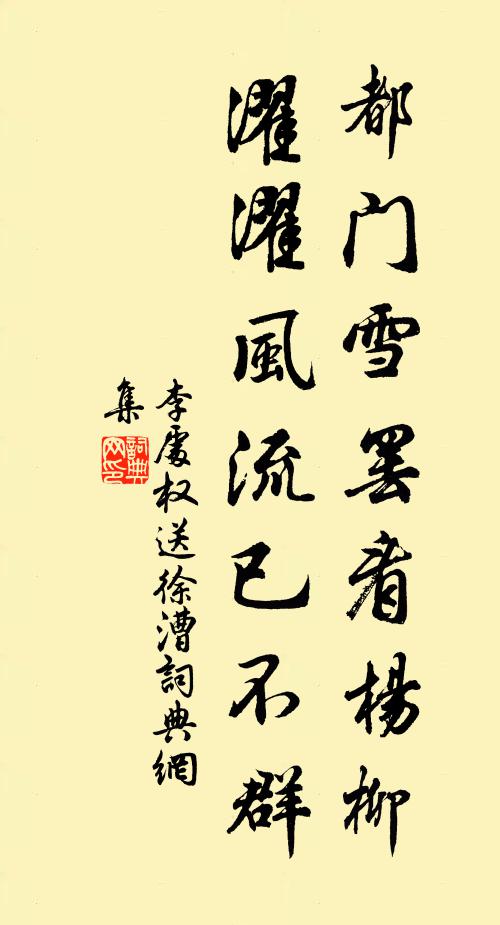 都门雪罢看楊柳
濯濯風流已不群
李處权送徐漕詞典網
集
詞典网印